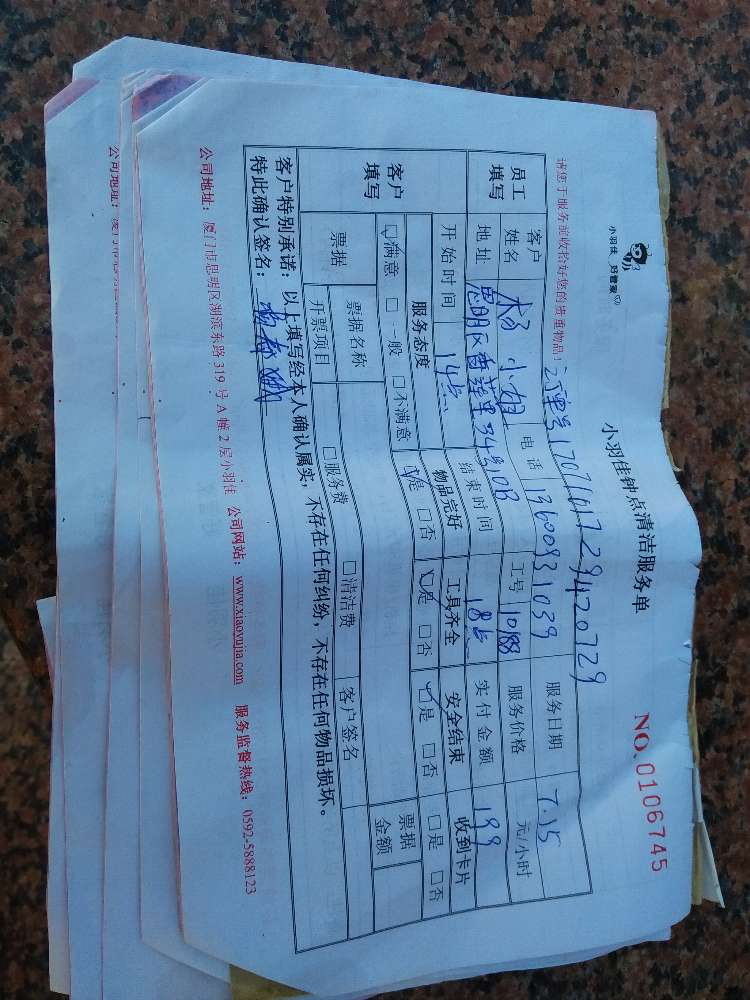 小羽佳 好管家
小羽佳钟点清洁服务单
NO.0106745
请您于服务前收拾好您的贵重物品！
订单号1707161729420729
员工填写 客户姓名 杨小姐 电话 13600931039 服务日期 7.15
地址 思明区香莲里34号 工号 10188 服务价格 元/小时
开始时间 14点 结束时间 18点 实付金额 199
客户填写 服务态度 物品完好 工具齐全 安全结束 收到卡片
☑满意 □一般 □不满意 ☑是 □否 ☑是 □否 ☑是 □否 □是 □否
票据 票据名称 □服务费 □清洁费 客户签名 票据金额
开票项目
客户特别承诺：以上填写经本人确认属实，不存在任何纠纷，不存在任何物品损坏。
特此确认签名：
公司地址：厦门市思明区湖滨东路319号A幢2层小羽佳 公司网站：www.xiaoyujia.com 服务监督热线：0592-5888123
公司地址：厦门市